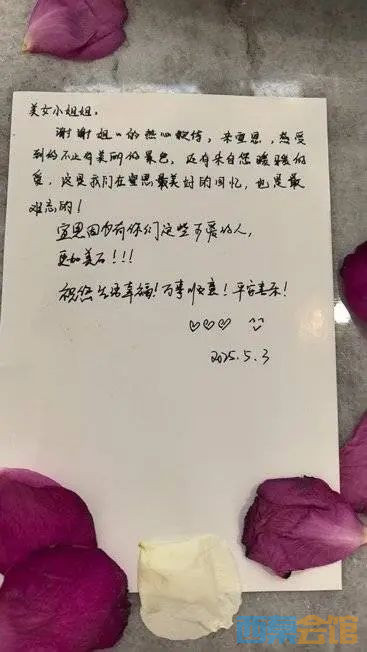 美女小姐姐,
谢谢姐姐的热心款待, 来宣恩, 感受
到的不止有美丽的景色, 还有来自您暖暖的
爱, 这是我们在宣恩最美好的回忆, 也是最
难忘的!
宣恩因为有你们这些可爱的人,
更加美了!!!
祝您生活幸福! 万事顺意! 平安喜乐!
♡♡♡ ^^
2025.5.3
西募会馆